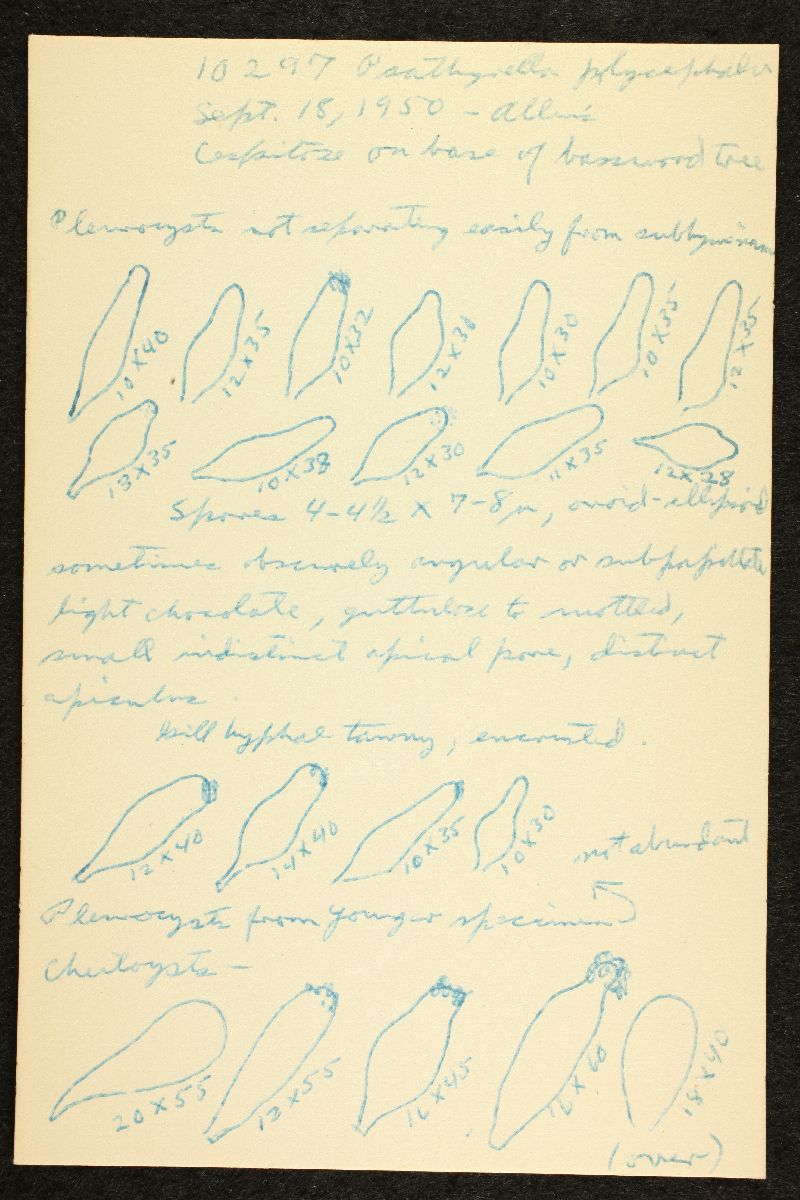 10297 Psathyrella polycephala
Sept. 18, 1950 - Allen's
Cespitose on base of basswood tree
Pleurocysts not separating easily from subhymenium
10 X 40 12 X 35 10 X 32 12 X 30 10 X 30 10 X 35 12 X 35
13 X 35 10 X 38 12 X 30 11 X 35 12 X 28
Spores 4-4½ X 7-8µ, ovoid-ellipsoid
sometimes obscurely angular or subpapillate
light chocolate, guttulose to mottled,
small indistinct apical pore, distinct
apiculus.
Gill hyphae tawny, encrusted.
12 X 40 14 X 40 10 X 35 10 X 30 not abundant
Pleurocysts from younger specimen
Cheilocysts -
20 X 55 13 X 55 16 X 45 16 X 60 18 X 40
(over)